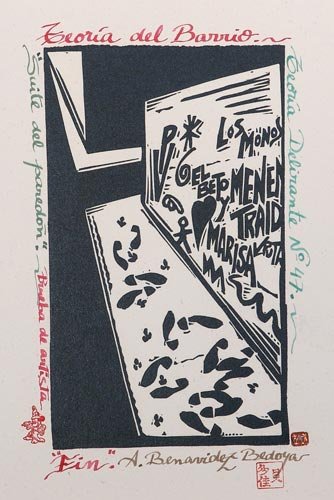 Teoría del Barrio.
"Suite del paredón".
Prueba de artista
Teoría Delirante Nº 47.
LOS MONOS
EL BETO
Y
MARISA
MENEM
TRAID
"Fin". A. Benavidez Bedoya